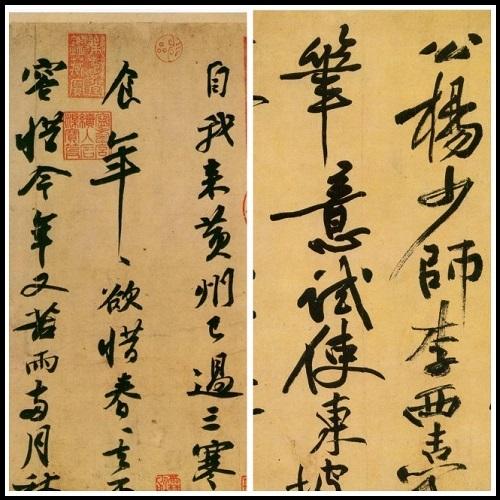 自我来黄州已過三寒
食年〻欲惜春〻去不
容惜今年又苦雨兩月秋
公楊少師李西臺
筆意試使東坡